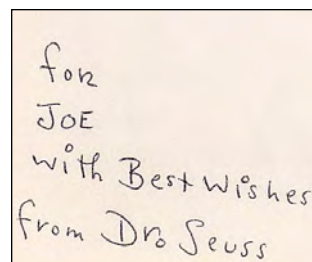 for
JOE
with Best Wishes
from Dr. Seuss